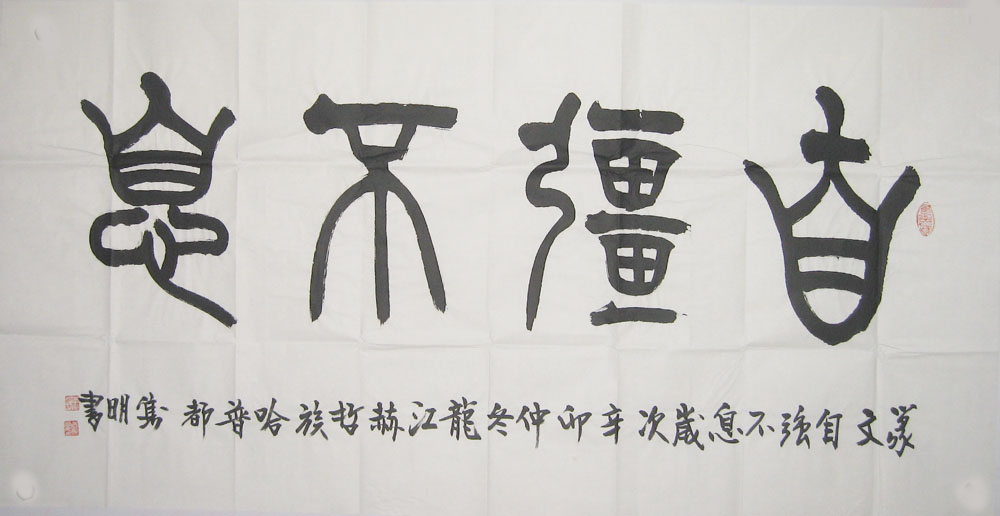 自彊不息
篆文自強不息歲次辛卯仲冬龍江赫哲族哈普都隽明書